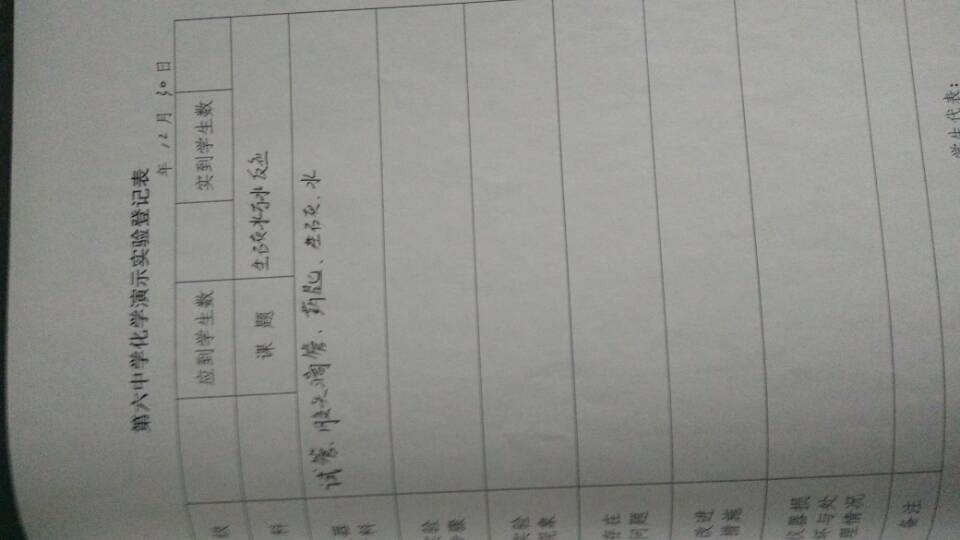 第六中学化学演示实验登记表
年 12 月 30 日
级 应到学生数 实到学生数
科 课 题 生石灰水与水反应
器 试管、胶头滴管、药匙、生石灰、水
科
实验
步骤
实验
现象
存在
问题
改进
措施
仪器损
坏与处
理情况
备注
学生代表：